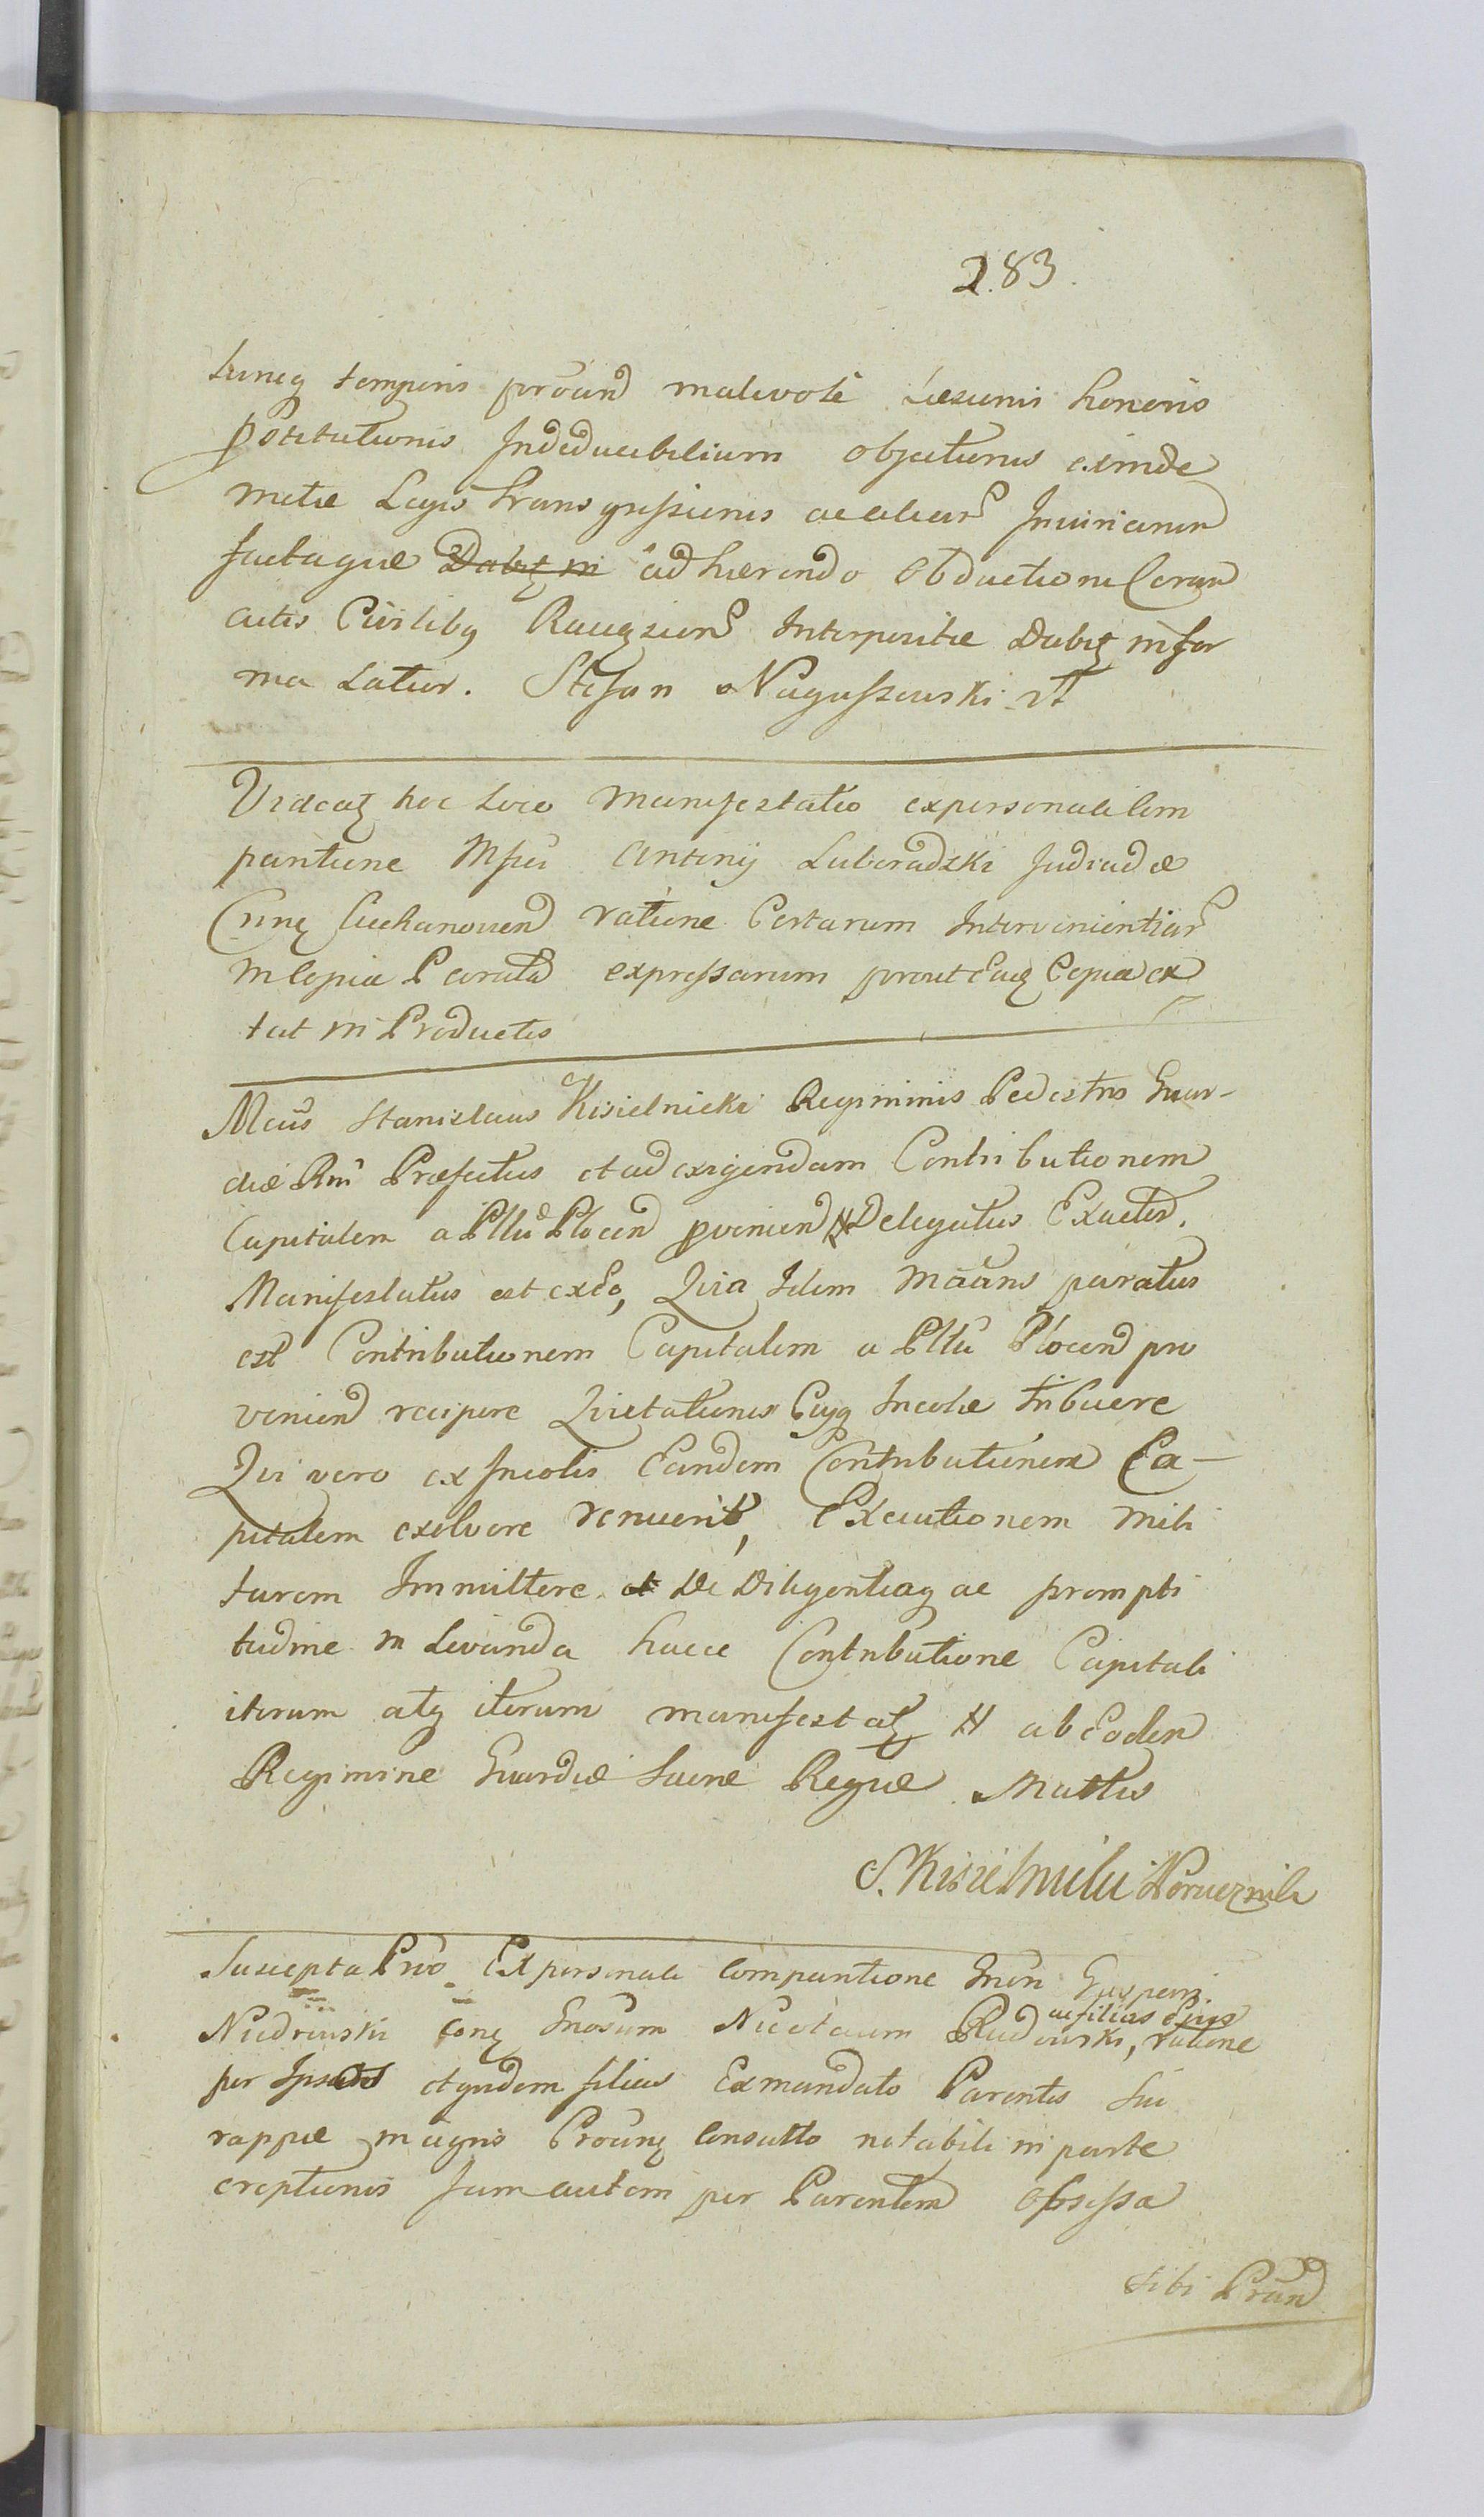 283.
tunq temporis proūd malevole Læsionis honoris
Pstitutionis Indeducibilium objectionis exinde
metæ Legis transgressionis acaliar Iniuriarum
factaque ad hærendo Obductioni Coram
actis Civilibq Interpositæ Dabit in for
ma Latior. Stefan Nagurszewski
Videat hoc Loco Manifestatio expersonali Com
paritione Mfici Antonij Luboradzki Judicis
Cnnq Ciechanoven ratione Certarum Intervenientiar
In Copia Porrecta expressarum prout Euq Copia ex
tat in Productis
Mcus Stanislaus Kisielnicki Regiminis Pedestris Guar-
diæ Rni Præfectus et ad exigendam Contributionem
Capitalem a Pllu Plocen pvenien # Delegatus Exactor.
Manifestatus est exeo, Quia Idem Maans paratus
est Contributionem Capitalem a Pllu Plocen pro
venien recipere Quietationes Cujq Incolæ tribuere
Qui vero ex Incolis Eandem Contributionem Ca-
pitalem exolvere renuerit, Executionem mili
tarem Immittere. et De Diligentiaq ac prompti
tudine in Levanda hacce Contributione Capitali
iterum atq iterum manifestat # ab Eodem
Regimine Guardiæ Sacræ Regiæ Mattis
S. Kisielnicki
Suscepta Pro Expersonali Comparitione Gnen Gasperi
Niedrowski conq Gnosum Nicolaum Rudowski, ac filius Ejus ratione
per Ipsum etquidem filius Exmandato Parentis sui
rappæ in agris Consulto notabili in parte
ereptionis Jam autem per Parentem Obsessa
sibi